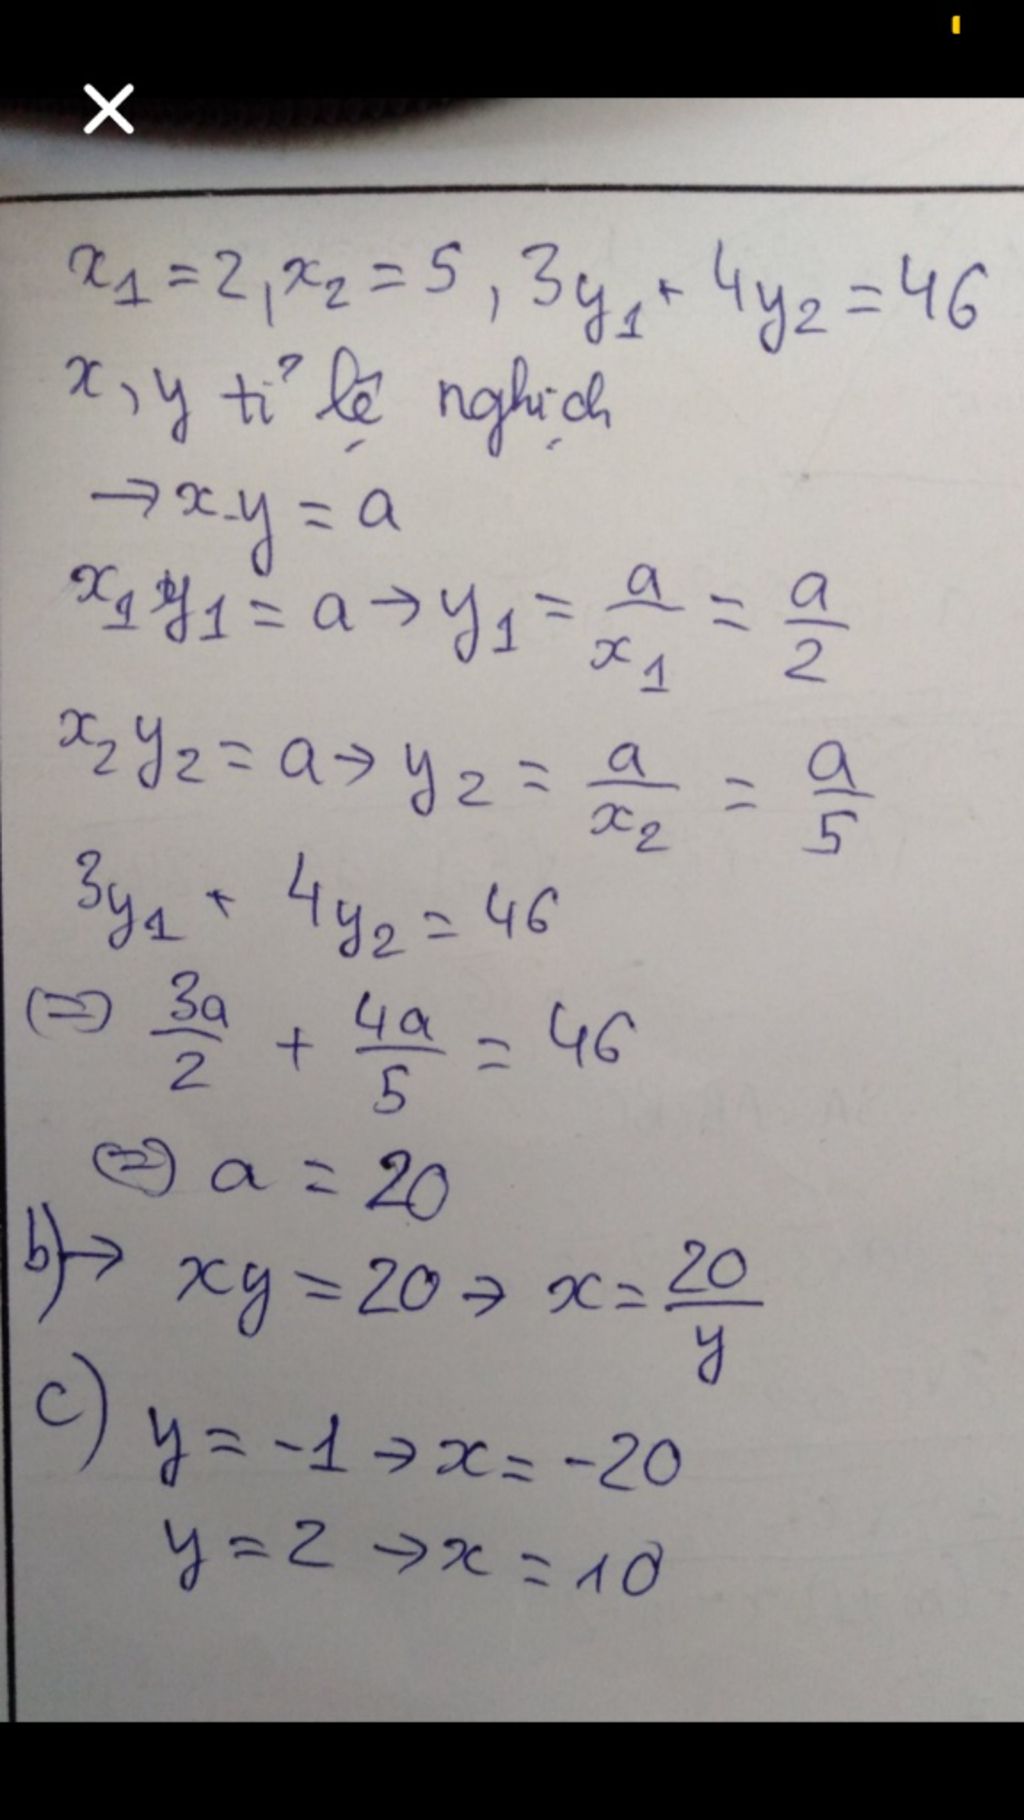 x₁ = 2, x₂ = 5, 3y₁ + 4y₂ = 46
x, y tỉ lệ nghịch
→ x.y = a
x₁y₁ = a → y₁ = a/x₁ = a/2
x₂y₂ = a → y₂ = a/x₂ = a/5
3y₁ + 4y₂ = 46
(=) 3a/2 + 4a/5 = 46
(=) a = 20
b) → xy = 20 → x = 20/y
c) y = -1 → x = -20
y = 2 → x = 10